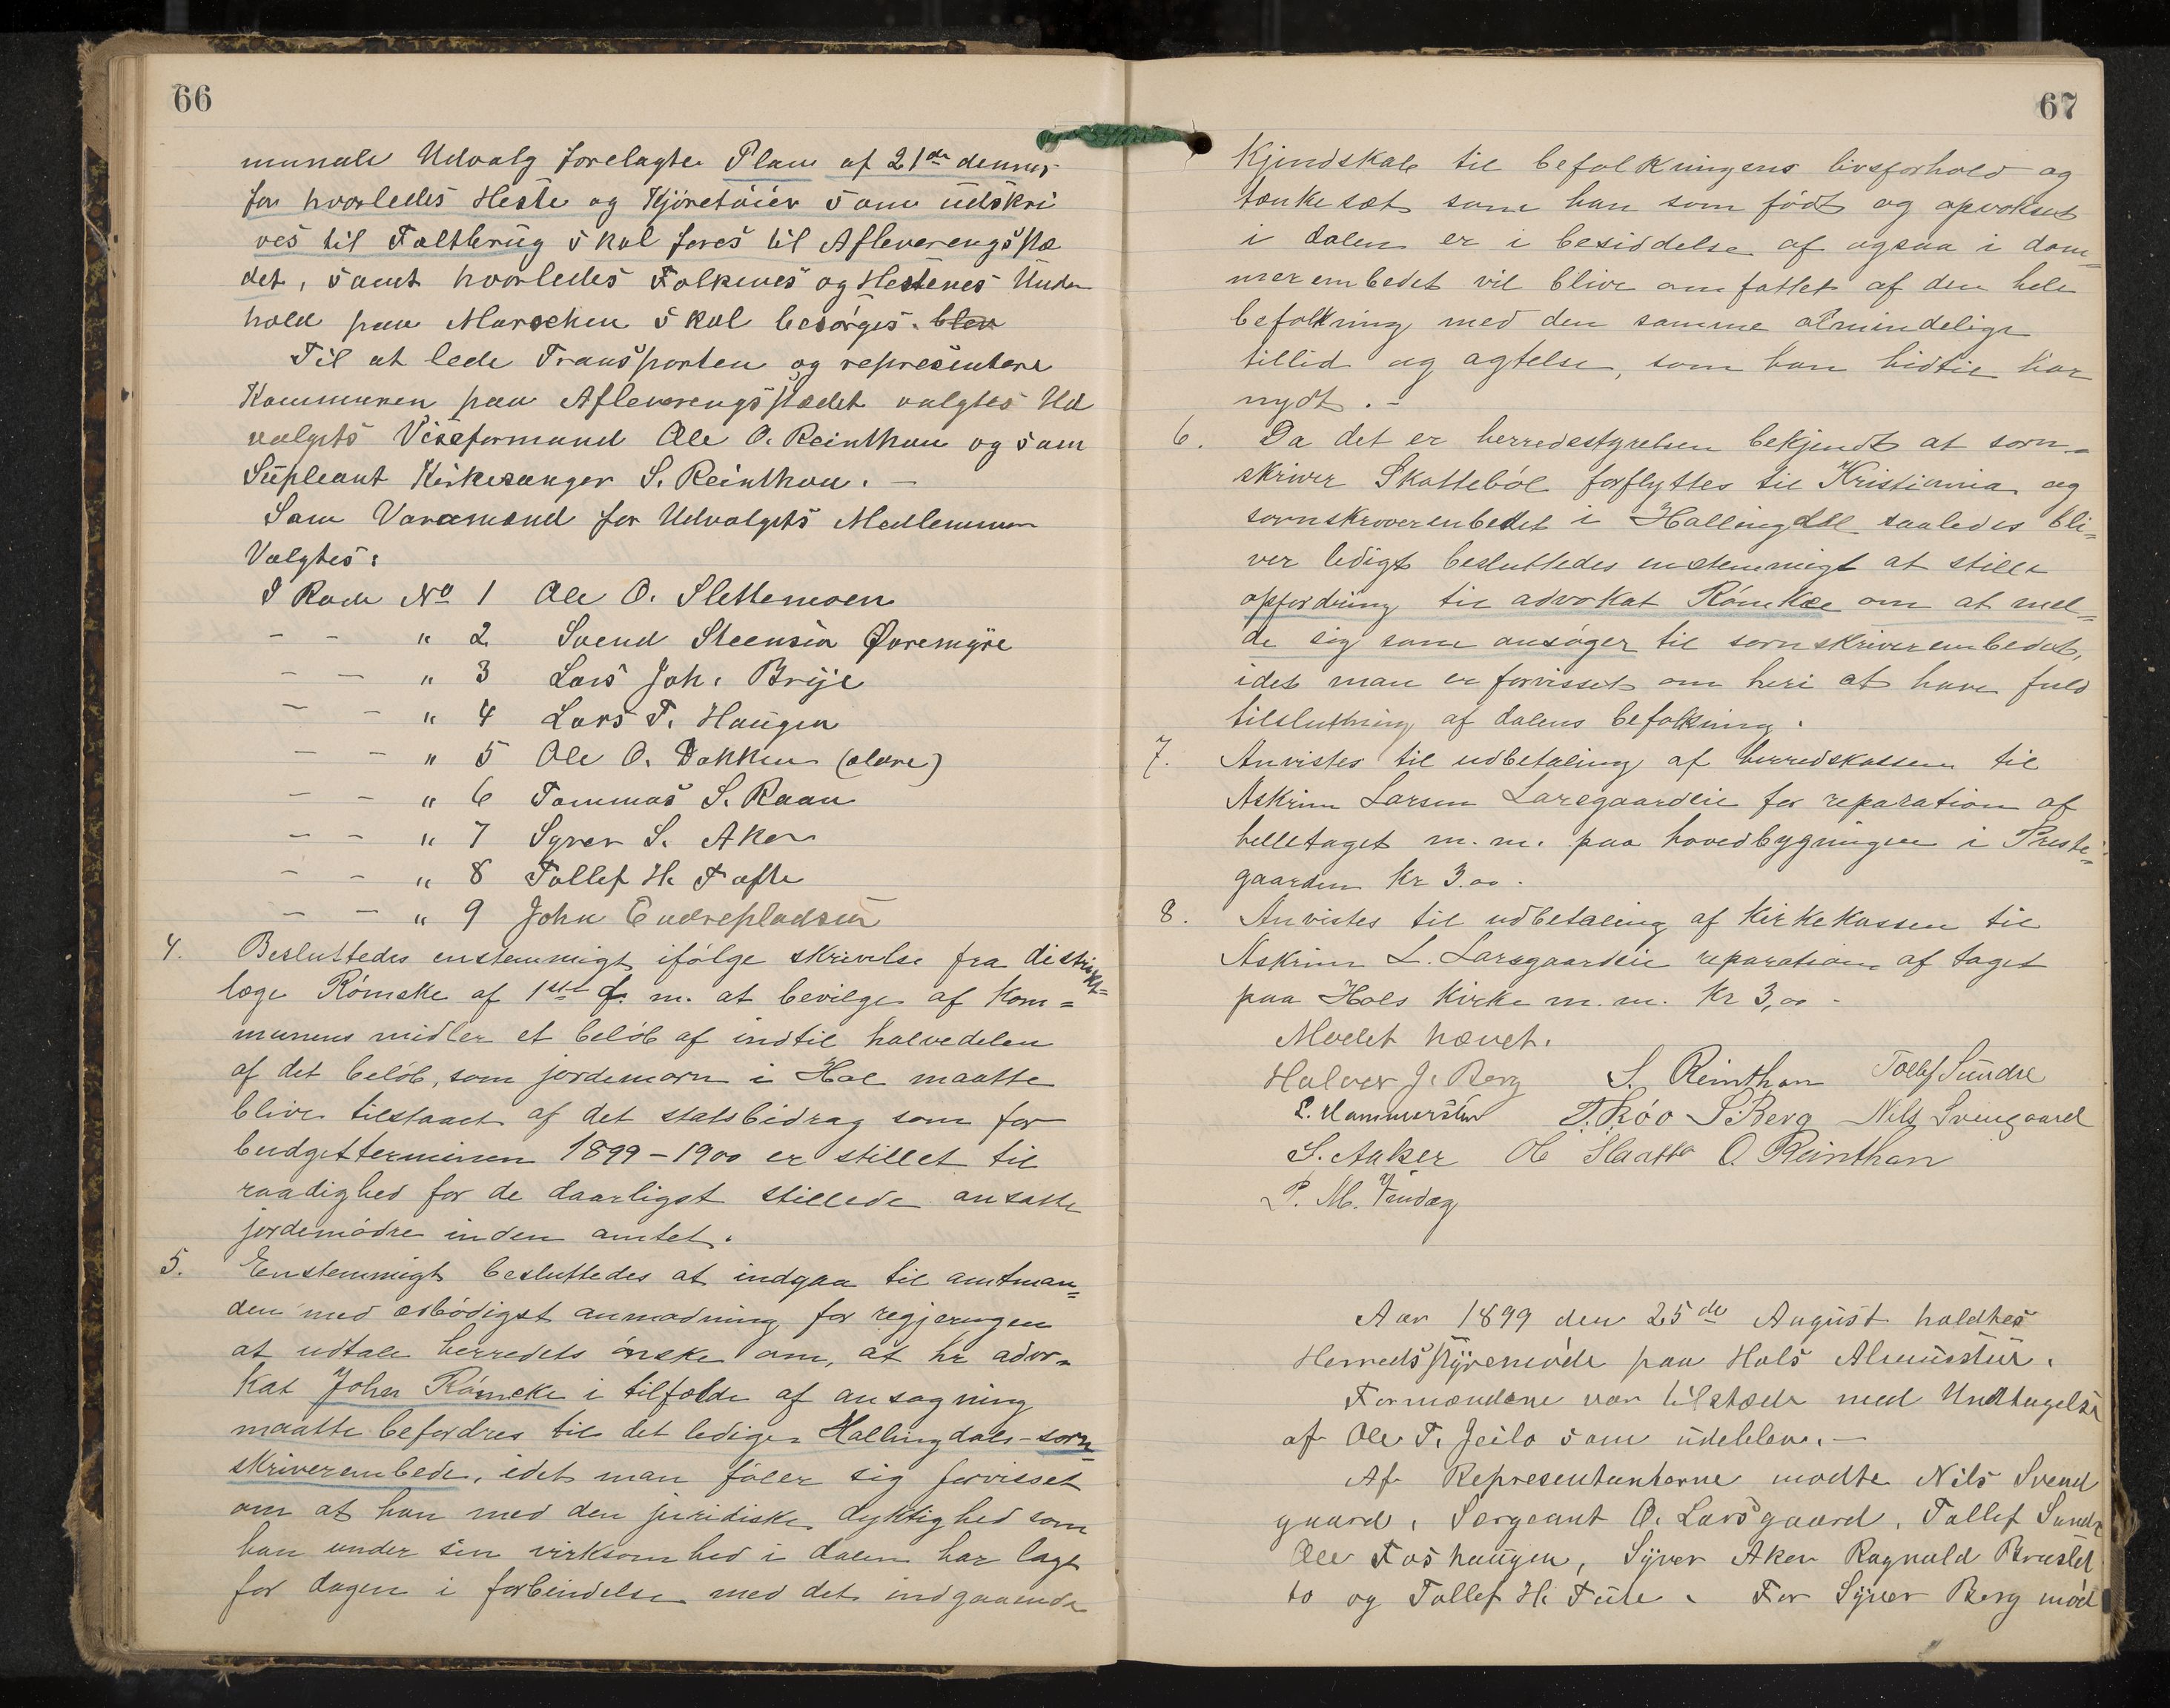 66
munale Udvalg forelagte Plan af 21de dennes
for hvorledes Heste og Kjøretøier som udskri
ves til Feltbrug skal føres til Afleverengsstæ
det, samt hvorledes Folkenes og Hestenes Under
hold paa Marschen skal besørges. blev
Til at lede Transporten og representere
Kommunen paa Afleverengsstædet valgtes Ud
valgets Viseformand Ole O. Reinthon og som
Supleant Kirkesanger S. Reinthon. -
Som Varamænd for Udvalgets Medlemmer
Valgtes:
I Rode No 1 Ole O. Slettemoen
- - " 2 Svend Steensen Øvremyre
- - " 3 Lars Joh. Brije
- - " 4 Lars T. Haugen
- - " 5 Ole O. Dokken (ældre)
- - " 6 Tommas S. Raan
- - " 7 Syver S. Aker
- - " 8 Tollef H. Tufte
- - " 9 John Endrepladsen
4. Besluttedes enstemmigt ifølge skrivelse fra distrikts=
læge Rømcke af 1ste d. m. at bevilge af kom=
munens midler et beløb af indtil halvedelen
af det beløb, som jordemorn i Hol maatte
blive tilstaaet af det statsbidrag som for
budgetterminen 1899-1900 er stillet til
raadighed for de daarligst stillede ansatte
jordemødre inden amtet.
5. Enstemmigt besluttedes at indgaa til amtman=
den med ærbødigst anmodning for regjeringen
at udtale herredets ønske om, at hr advo=
kat Johan Rømcke i tilfælde af ansøgning
maatte befordres til det ledige Hallingdals-sorn=
skriverembede, idet man føler sig forvisset
om at han med den juridiske dyktighed som
han under sin virksomhed i dalen har lagt
for dagen i forbindelse med det indgaaende
67
Kjendskab til befolkningens livsforhold og
tænkesæt som han som født og opvokset
i dalen er i besiddelse af ogsaa i dom=
merembedet vil blive omfattet af den hele
befolkning med den samme almindelige
tillid og agtelse, som han hidtil har
nydt. -
6. Da det er herredestyrelsen bekjendt at sorn=
skriver Skattebøl forflyttes til Kristiania og
sornskriverembedet i Hallingdal saaledes bli=
ver ledigt besluttedes enstemmigt at stille
opfordring til advokat Rømcke om at mel=
de sig som ansøger til sornskriverembedet,
idet man er forvisset om heri at have fuld
tilslutning af dalens befolkning.
7. Anvistes til udbetaling af herredskassen til
Askrim Larsen Larsgaardeie for reparation af
helletaget m.m. paa hovedbygningen i Preste=
gaarden kr 3.00.
8. Anvistes til udbetaling af kirkekassen til
Askrim L. Larsgaardeie reparation af taget
paa Hols kirke m.m. kr 3,00 -
Mødet hævet.
Halvor J. Berg S. Reinthon Tollef Sundre
L. Hammersbøn T. Røo S. Berg Nils Svengaard
S. Aaker O. Reinthon
P. M.
Aar 1899 den 25de August holdtes
Herredsstyremøde paa Hols Almustue.
Formændene var tilstæde med Undtagelse
af Ole T. Jeilo som udeblev. -
Af Representanterne mødte Nils Svend
gaard, Sergeant O. Larsgaard, Tollef Sundre
Ole Foshaugen, Syver Aker Ragnvald Bruslet
to og Tollef H. Tufte. For Syver Berg mød